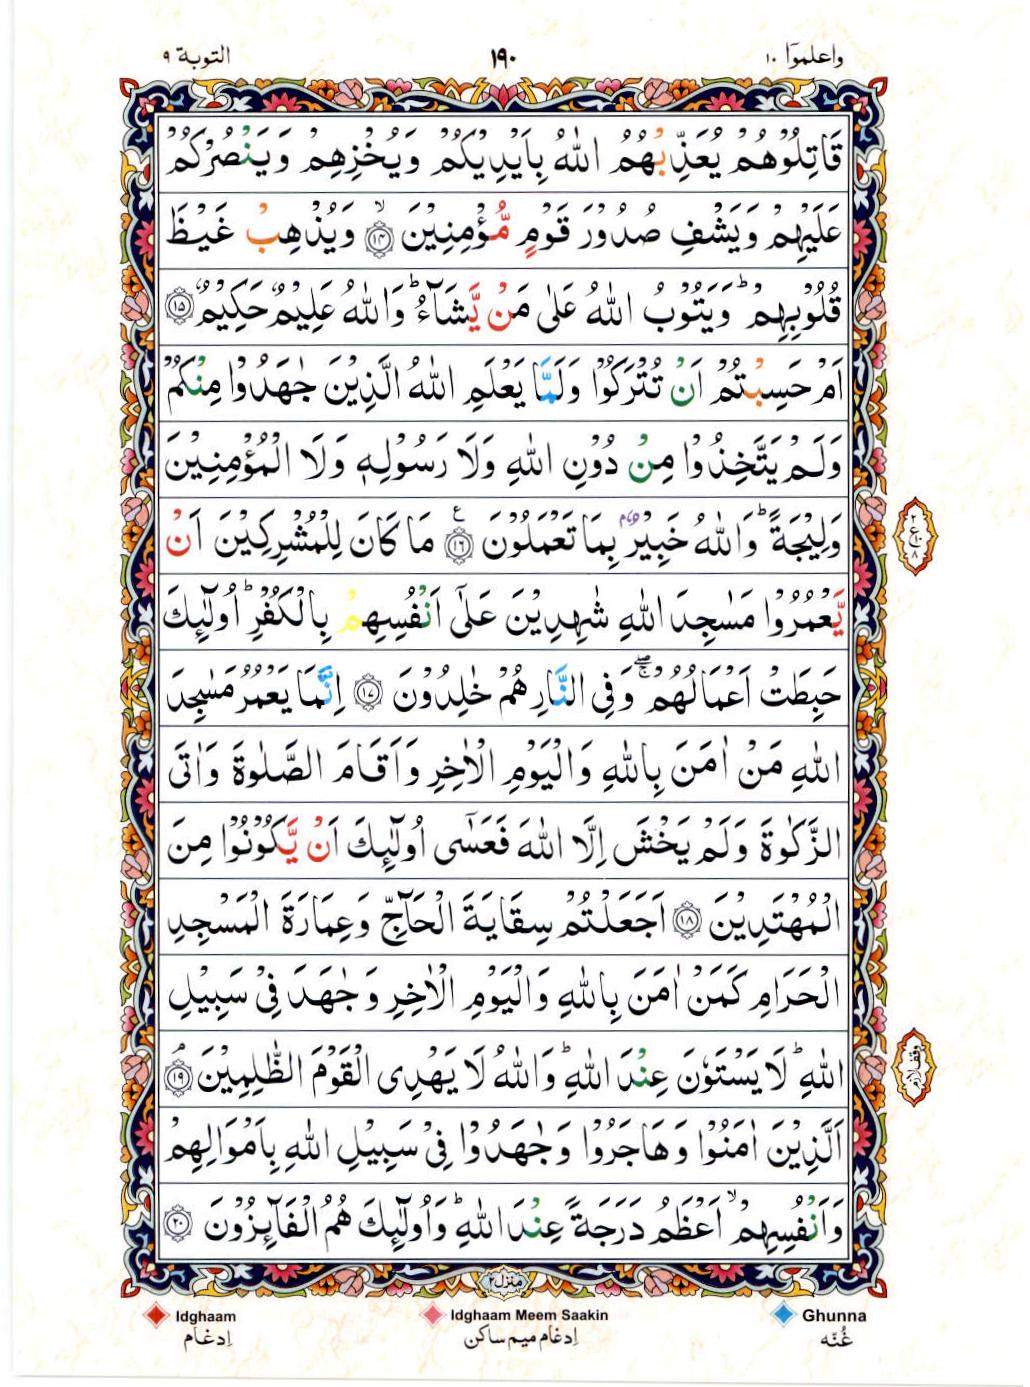 واعلموٓا ١٠
١٩٠
التوبة ٩
قَاتِلُوْهُمْ يُعَذِّبْهُمُ اللّٰهُ بِاَيْدِيْكُمْ وَيُخْزِهِمْ وَيَنْصُرْكُمْ
عَلَيْهِمْ وَيَشْفِ صُدُوْرَ قَوْمٍ مُّؤْمِنِيْنَ ۙ ﴿١٤﴾ وَيُذْهِبْ غَيْظَ
قُلُوْبِهِمْ ؕ وَيَتُوْبُ اللّٰهُ عَلٰى مَنْ يَّشَآءُ ؕ وَاللّٰهُ عَلِيْمٌ حَكِيْمٌ ﴿١٥﴾
اَمْ حَسِبْتُمْ اَنْ تُتْرَكُوْا وَلَمَّا يَعْلَمِ اللّٰهُ الَّذِيْنَ جٰهَدُوْا مِنْكُمْ
وَلَمْ يَتَّخِذُوْا مِنْ دُوْنِ اللّٰهِ وَلَا رَسُوْلِهٖ وَلَا الْمُؤْمِنِيْنَ
وَلِيْجَةً ؕ وَاللّٰهُ خَبِيْرٌۢ بِمَا تَعْمَلُوْنَ ﴿١٦﴾ ع مَا كَانَ لِلْمُشْرِكِيْنَ اَنْ
٢ ع ١٠ ٨
يَّعْمُرُوْا مَسٰجِدَ اللّٰهِ شٰهِدِيْنَ عَلٰٓى اَنْفُسِهِمْ بِالْكُفْرِ ؕ اُولٰٓئِكَ
حَبِطَتْ اَعْمَالُهُمْ ۖۚ وَفِى النَّارِ هُمْ خٰلِدُوْنَ ﴿١٧﴾ اِنَّمَا يَعْمُرُ مَسٰجِدَ
اللّٰهِ مَنْ اٰمَنَ بِاللّٰهِ وَالْيَوْمِ الْاٰخِرِ وَاَقَامَ الصَّلٰوةَ وَاٰتَى
الزَّكٰوةَ وَلَمْ يَخْشَ اِلَّا اللّٰهَ فَعَسٰٓى اُولٰٓئِكَ اَنْ يَّكُوْنُوْا مِنَ
الْمُهْتَدِيْنَ ﴿١٨﴾ اَجَعَلْتُمْ سِقَايَةَ الْحَآجِّ وَعِمَارَةَ الْمَسْجِدِ
الْحَرَامِ كَمَنْ اٰمَنَ بِاللّٰهِ وَالْيَوْمِ الْاٰخِرِ وَجٰهَدَ فِىْ سَبِيْلِ
اللّٰهِ ؕ لَا يَسْتَوٗنَ عِنْدَ اللّٰهِ ؕ وَاللّٰهُ لَا يَهْدِى الْقَوْمَ الظّٰلِمِيْنَ ۘ ﴿١٩﴾
وقف لازم
اَلَّذِيْنَ اٰمَنُوْا وَهَاجَرُوْا وَجٰهَدُوْا فِىْ سَبِيْلِ اللّٰهِ بِاَمْوَالِهِمْ
وَاَنْفُسِهِمْ ۙ اَعْظَمُ دَرَجَةً عِنْدَ اللّٰهِ ؕ وَاُولٰٓئِكَ هُمُ الْفَآئِزُوْنَ ﴿٢٠﴾
منزل ٢
Idghaam
Idghaam Meem Saakin
Ghunna
اِدغام
اِدغام ميم ساكن
غُنّه